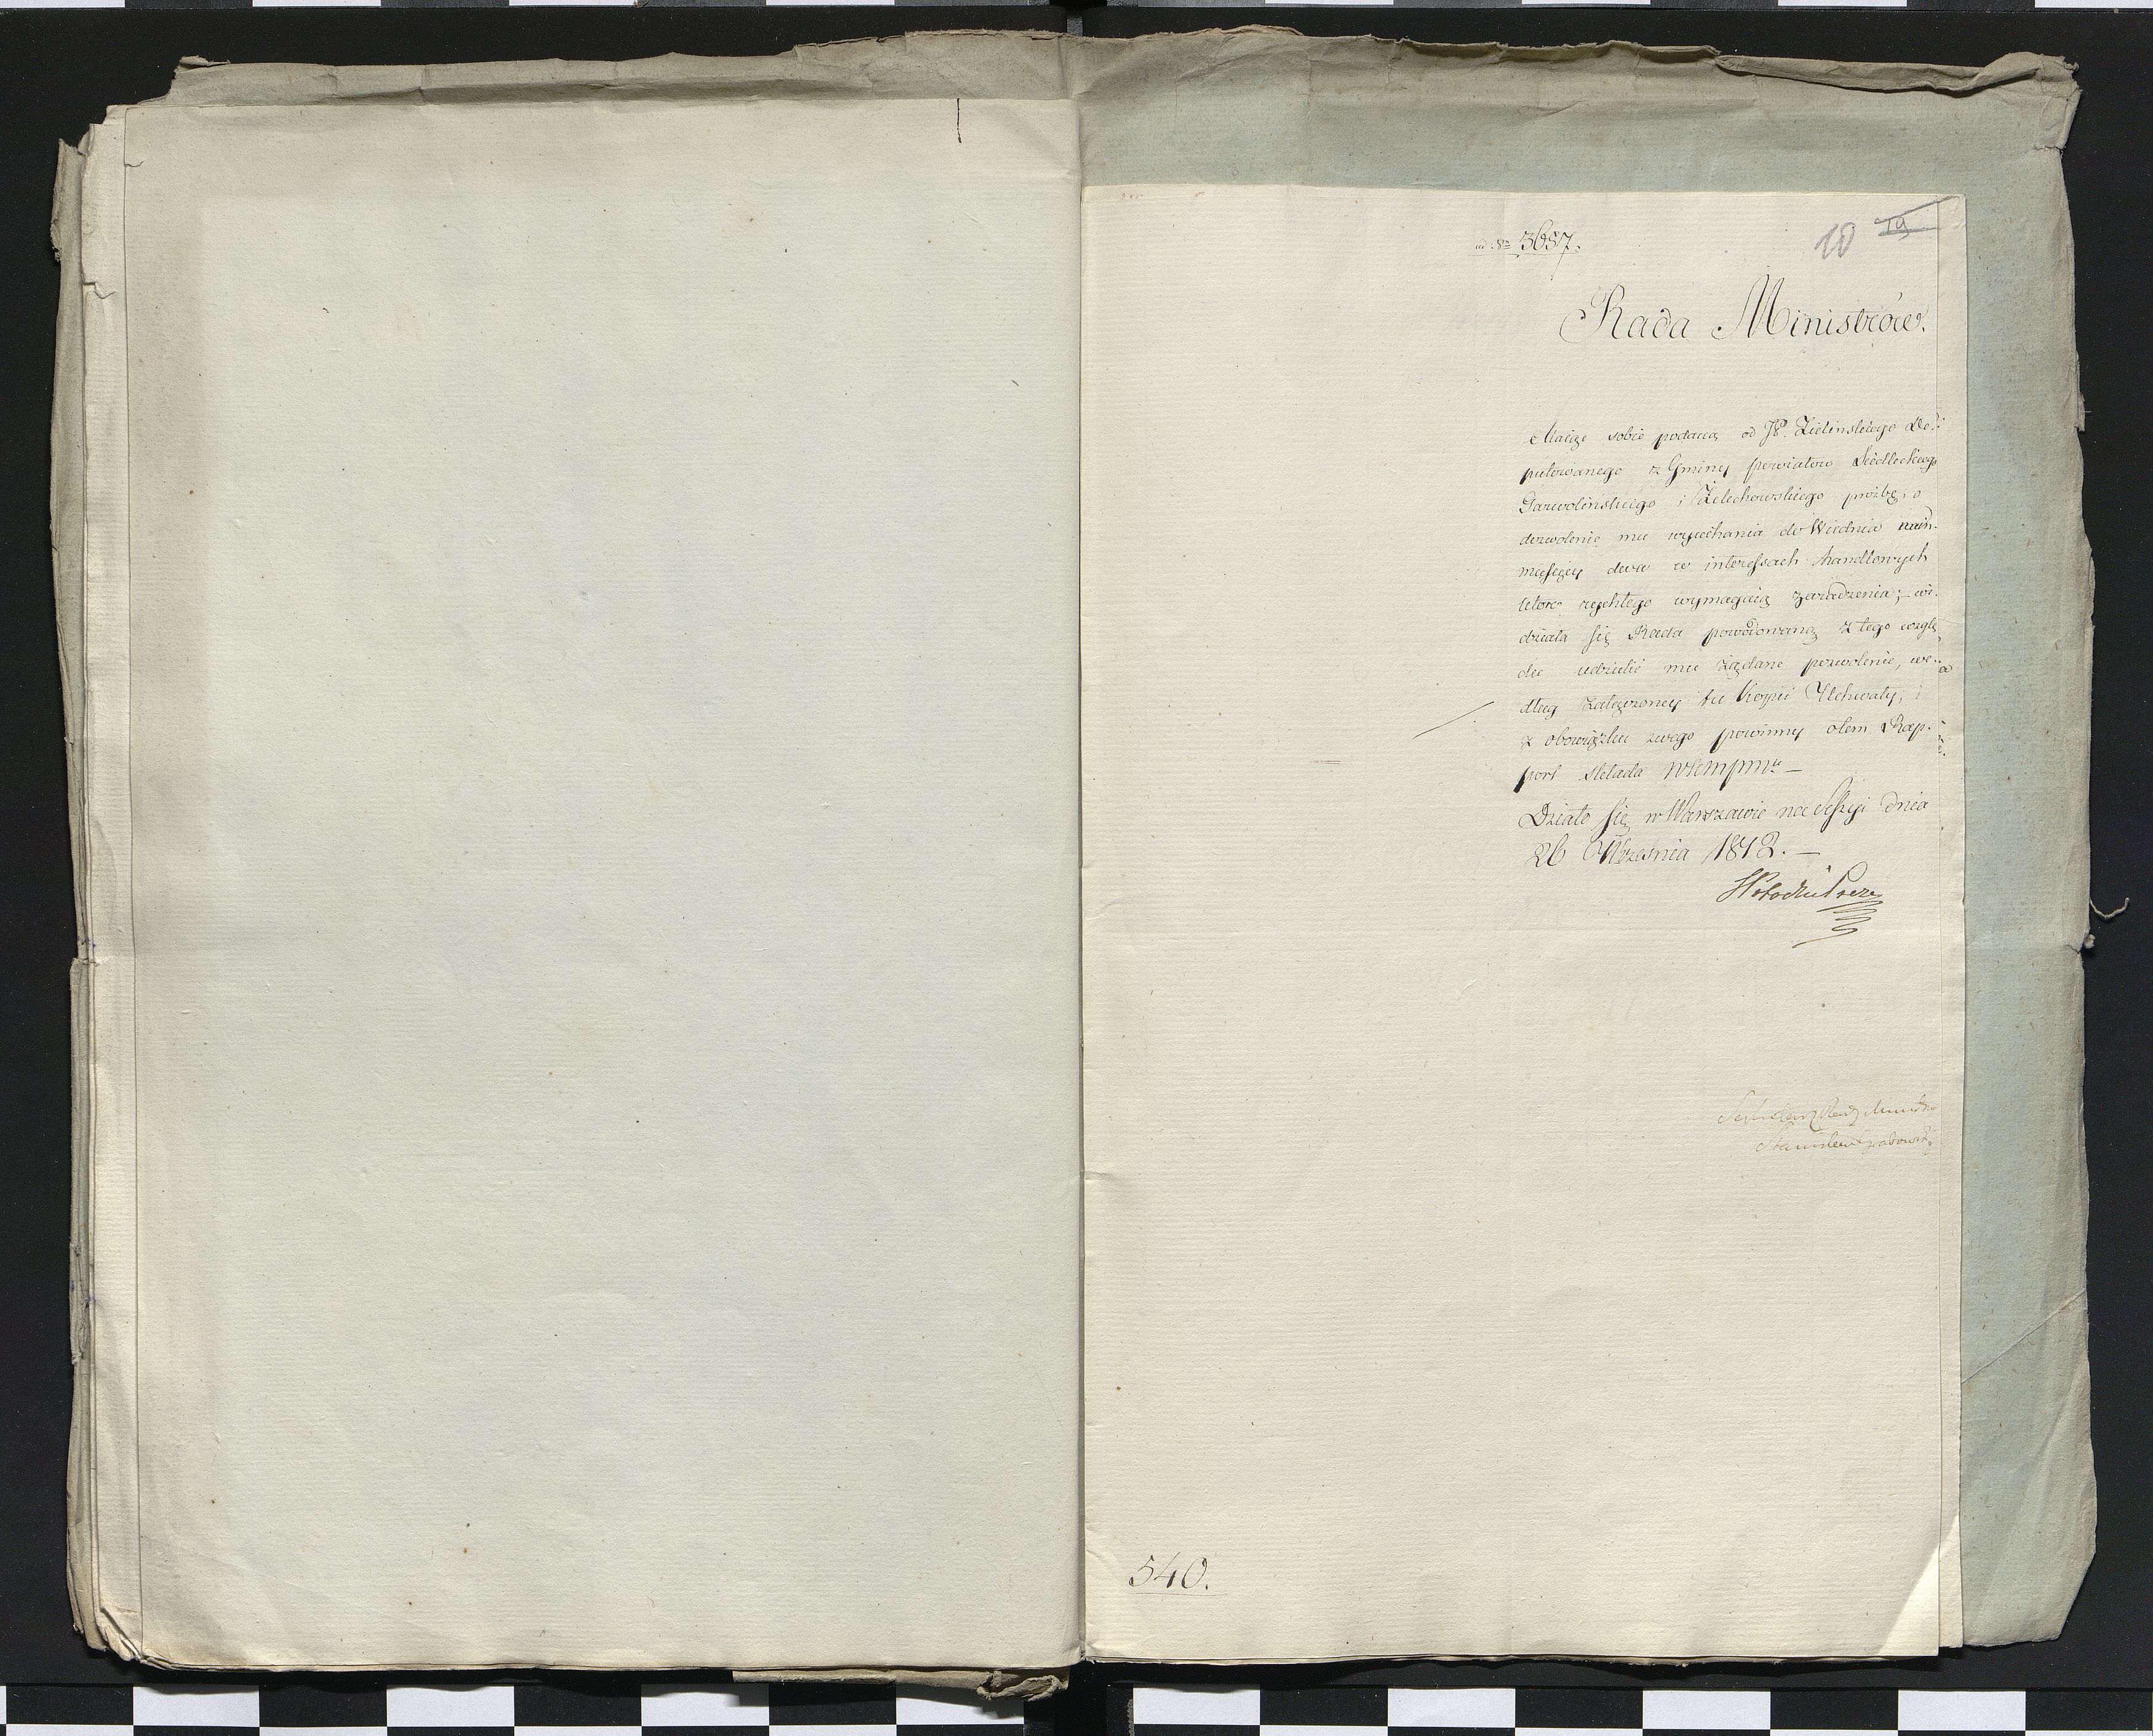 ad Nr 3687.
10 19
Rada Ministrów.
Maiąc sobie podaną od JP. Zielinskiego De-
putowanego z Gminy powiatow Siedleckiego
Garwolinskiego i Żelechowskiego prozbę, o
dozwolenie mu wyiechania do Wiednia na
miesięcy dwa w interessach handlowych
ktore rychłego wymagaią zaradzenia; wi-
działa się Rada powodowaną z tego wzglę-
du udzielić mu żądane pozwolenie, we-
dług załączoney tu Kopii Uchwały, i
z obowiązku swego powinny o tem Rap-
port składa
Działo się w Warszawie na Sessyi dnia
26 Września 1812. —
S Potocki Prezes
Sekretarz Rady Ministrów
Stanisław Grabowski
540.